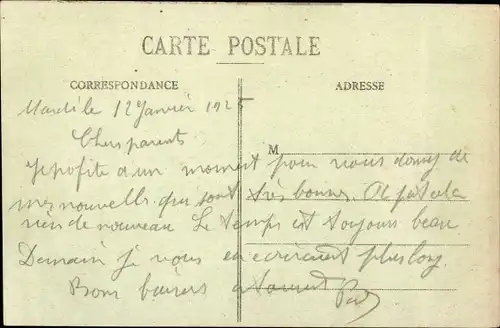 CARTE POSTALE
CORRESPONDANCE
ADRESSE
Mardi le 12 Janvier 1925
Chers parents
M
profite d'un moment pour vous donner de
mes nouvelles qui sont très bonnes. A part cela
rien de nouveau Le temps est toujours beau
Demain je vous en écrirai plus long
Bons baisers a tous